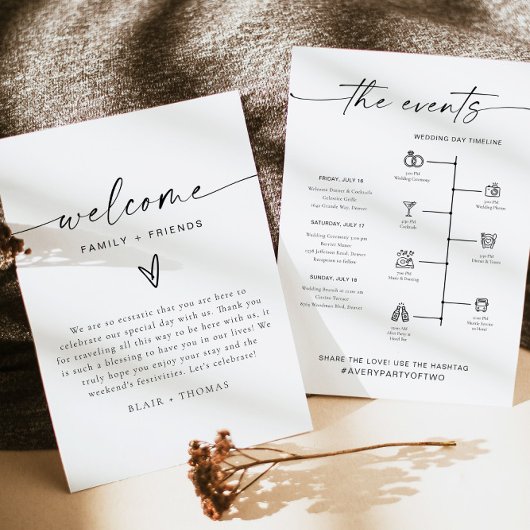 welcome
FAMILY + FRIENDS
We are so ecstatic that you are here to
celebrate our special day with us. Thank you
for traveling all this way to be here with us, it
is such a blessing to have you in our lives! We
truly hope you enjoy your stay and the
weekend's festivities. Let's celebrate!
BLAIR + THOMAS
the events
WEDDING DAY TIMELINE
FRIDAY, JULY 16
Welcome Dinner & Cocktails
Celestine Grille
1640 Grande Way, Denver
SATURDAY, JULY 17
Wedding Ceremony 5:00 PM
Denver Manor
1238 Jefferson Road, Denver
Reception to Follow
SUNDAY, JULY 18
Wedding Brunch at 11:00 AM
Cistine Terrace
8629 Woodman Blvd, Denver
Wedding Ceremony
Wedding Photos
Cocktails
Dinner & Toasts
Music & Dancing
Shuttle Service
to Hotel
After Party at
Hotel Bar
SHARE THE LOVE! USE THE HASHTAG
#AVERYPARTYOFTWO